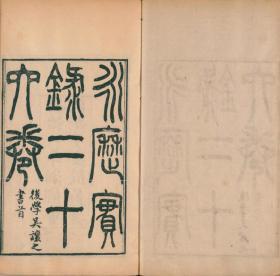 永歷實
錄二十
六卷
後學吳讓之
書首